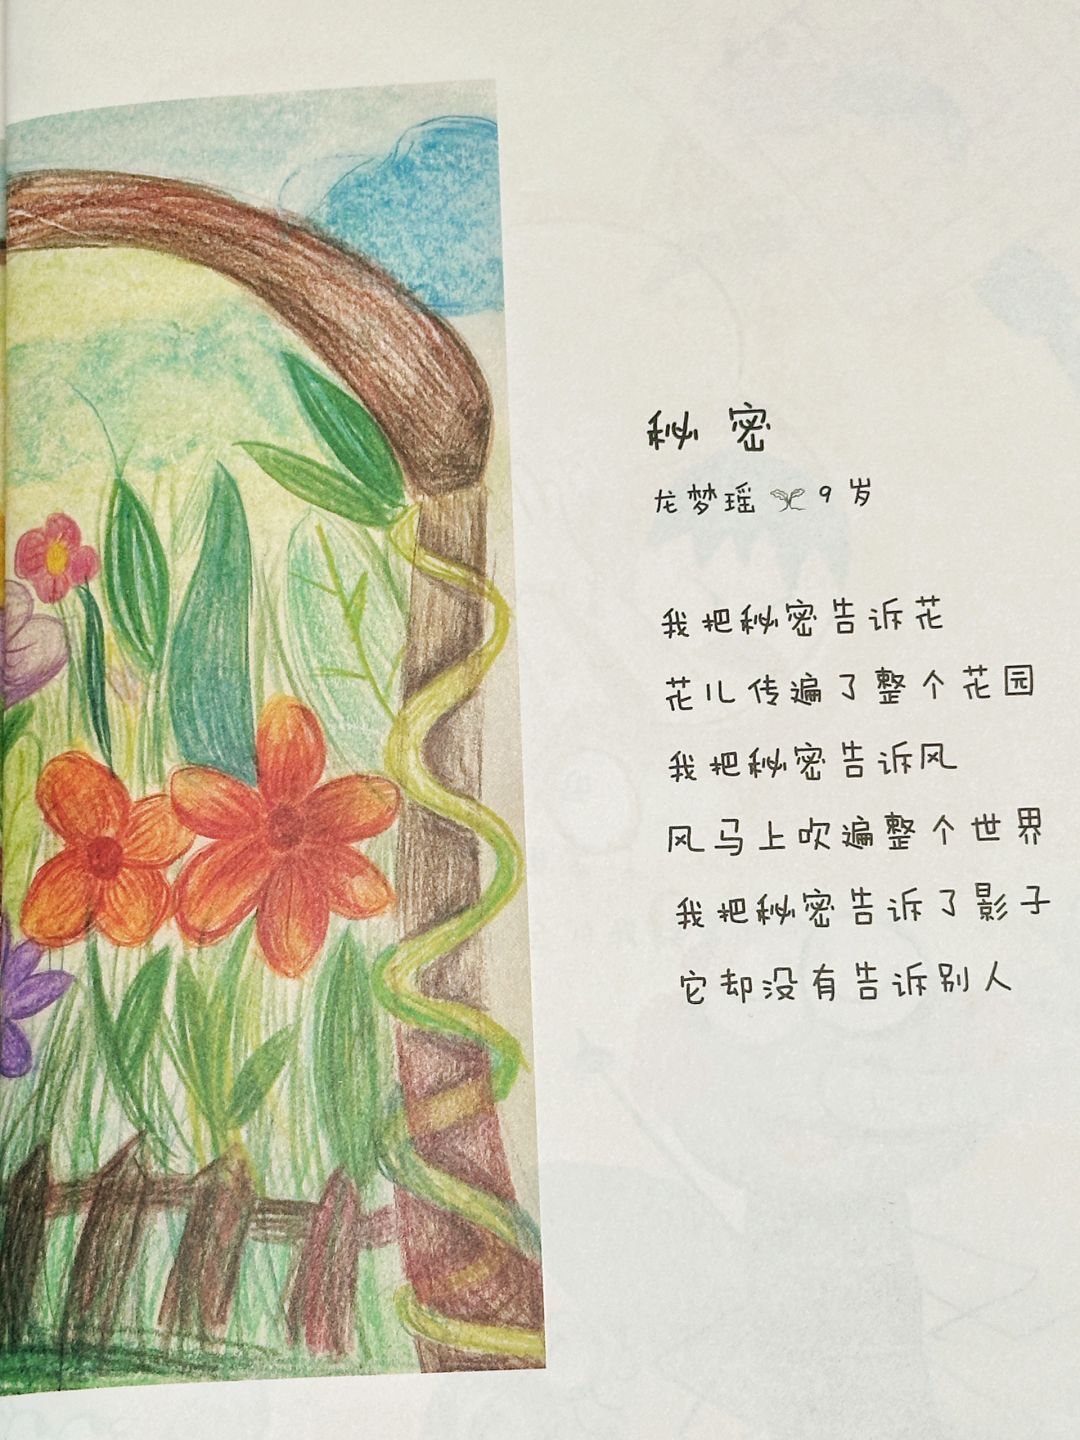 秘密
龙梦瑶 9岁
我把秘密告诉花
花儿传遍了整个花园
我把秘密告诉风
风马上吹遍整个世界
我把秘密告诉了影子
它却没有告诉别人